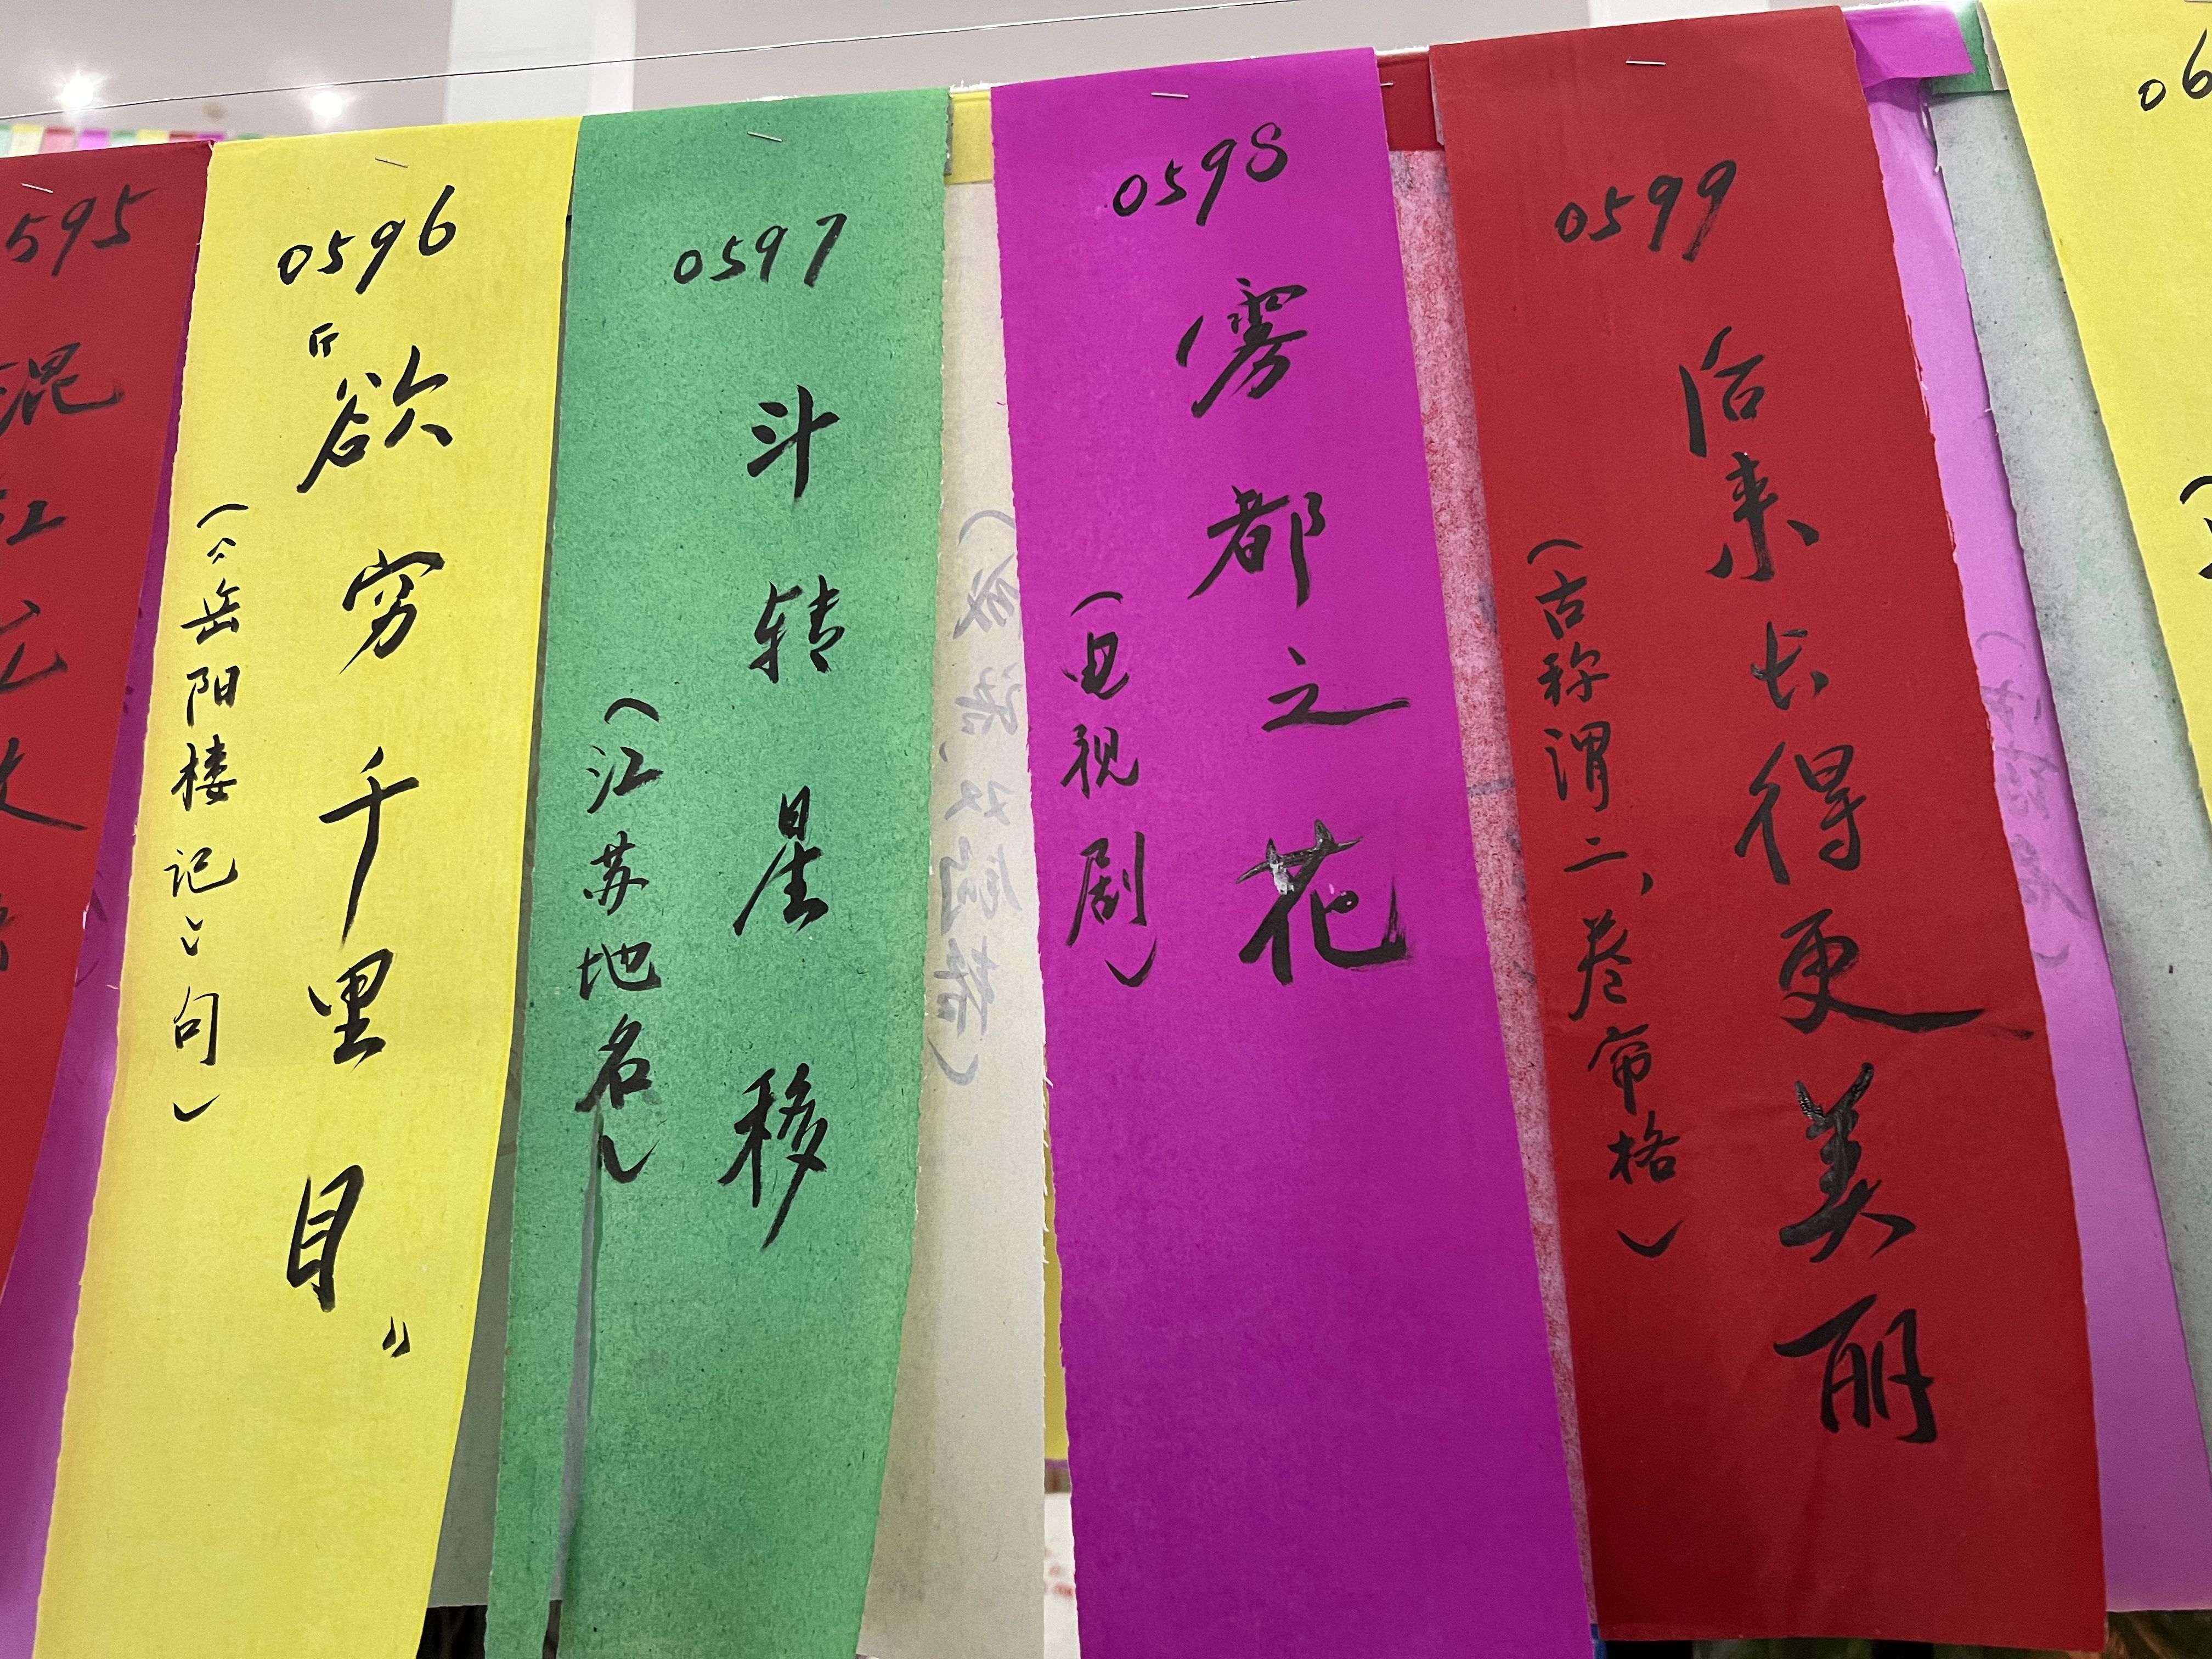 595
混
江
0596
“欲穷千里目”
(《岳阳楼记》句)
0597
斗转星移
(江苏地名)
0598
雾都之花
(电视剧)
0599
后来长得更美丽
(古称谓二、卷帘格)
06